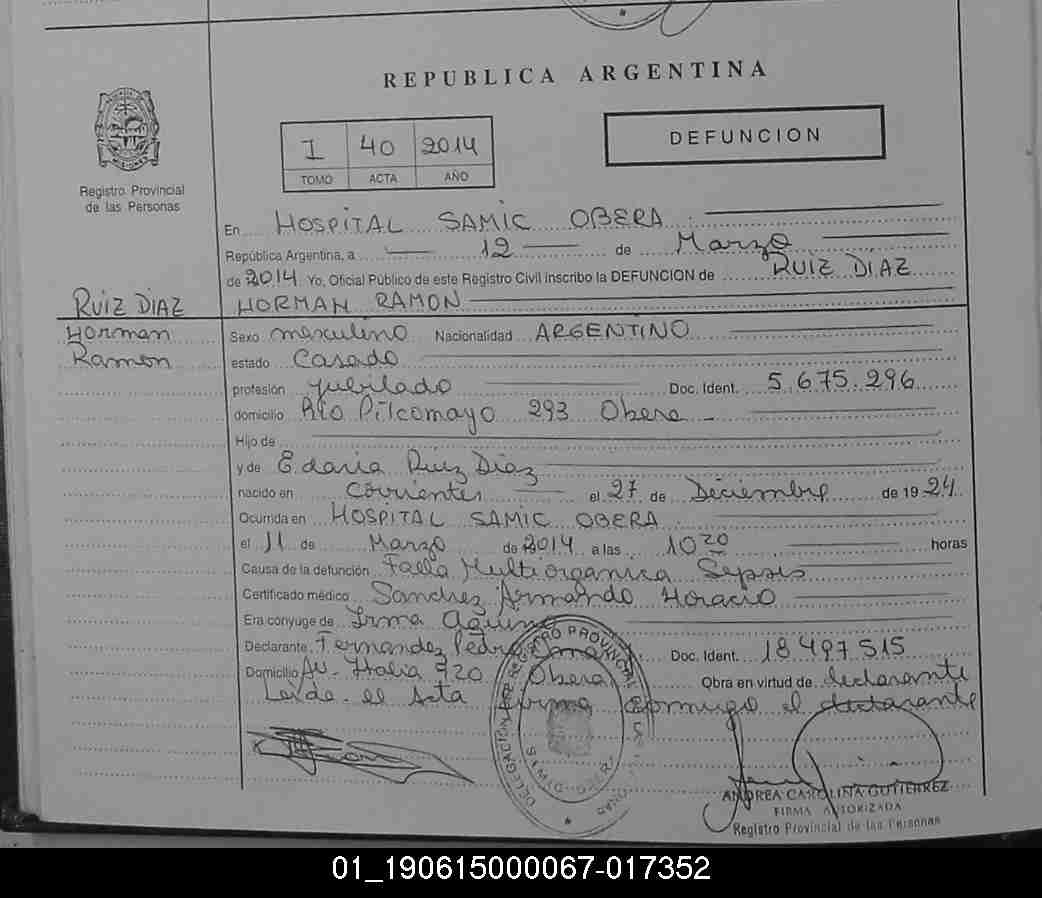 REPUBLICA ARGENTINA
Registro Provincial
de las Personas
I 40 2014
TOMO ACTA AÑO
DEFUNCION
En HOSPITAL SAMIC OBERA
República Argentina, a 12 de Marzo
de 2014 Yo, Oficial Público de este Registro Civil inscribo la DEFUNCION de RUIZ DIAZ
RUIZ DIAZ HORMAN RAMON
Horman Sexo masculino Nacionalidad ARGENTINO
Ramon estado Casado
profesión jubilado Doc. Ident. 5.675.296
domicilio Rio Pilcomayo 293 Obera
Hijo de
y de Edaria Ruiz Diaz
nacido en Corrientes el 27 de Deciembre de 1924
Ocurrida en HOSPITAL SAMIC OBERA
el 11 de Marzo de 2014 a las 10 20 horas
Causa de la defunción Falla Multiorganica Sepsis
Certificado médico Sanchez Armando Horacio
Era conyuge de Irma
Declarante Fernandez Pedro Doc. Ident. 18 497 515
Domicilio Av. Italia 720 Obera Obra en virtud de declarante
Leida el Acta firma conmigo el declarante
REGISTRO PROVINCIAL
ANDREA CAROLINA GUTIERREZ
FIRMA AUTORIZADA
Registro Provincial de las Personas
01_190615000067-017352